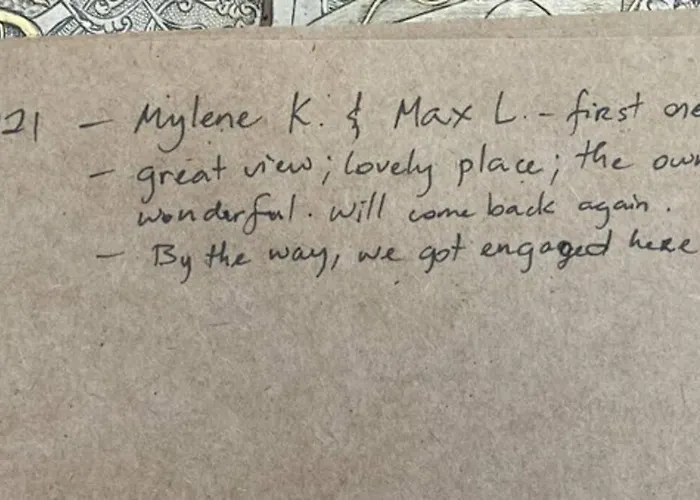 21 – Mylene K. & Max L. - first one
– great view; lovely place; the
wonderful. will come back again.
– By the way, we got engaged here